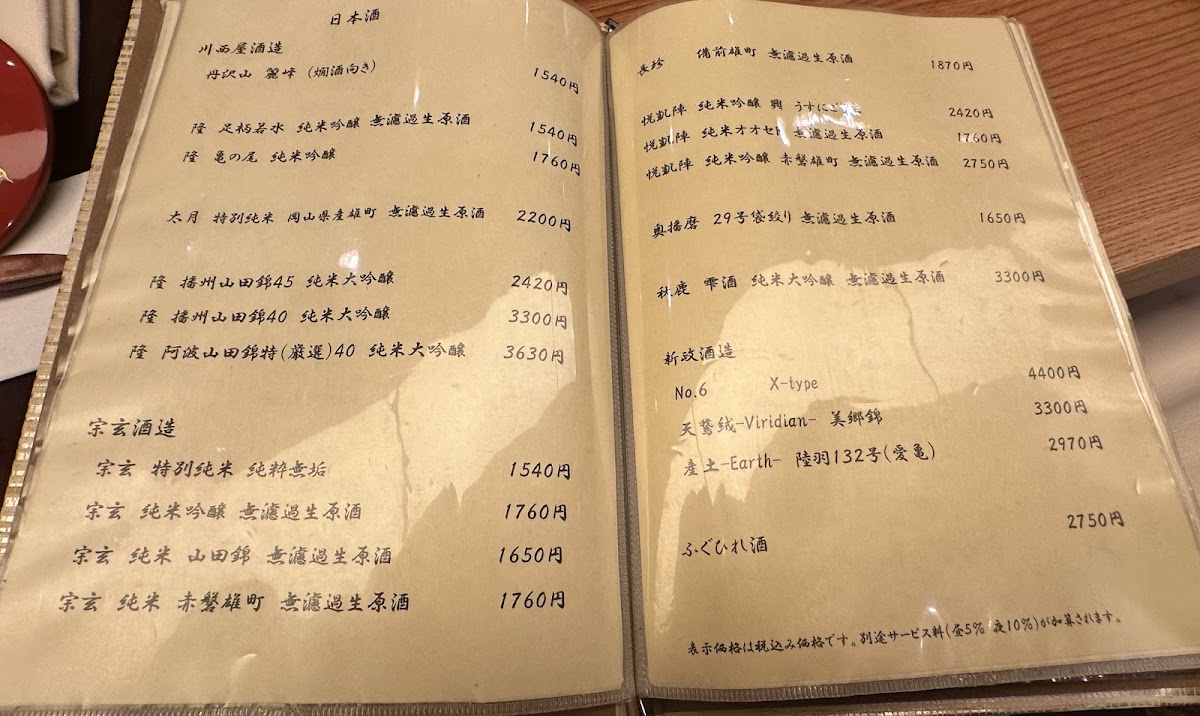 日本酒
川西屋酒造
丹沢山 麗峰 (燗酒向き) 1540円
隆 足柄若水 純米吟醸 無濾過生原酒 1540円
隆 亀の尾 純米吟醸 1760円
太月 特別純米 岡山県産雄町 無濾過生原酒 2200円
隆 播州山田錦45 純米大吟醸 2420円
隆 播州山田錦40 純米大吟醸 3300円
隆 阿波山田錦特(厳選)40 純米大吟醸 3630円
宗玄酒造
宗玄 特別純米 純粋無垢 1540円
宗玄 純米吟醸 無濾過生原酒 1760円
宗玄 純米 山田錦 無濾過生原酒 1650円
宗玄 純米 赤磐雄町 無濾過生原酒 1760円
長珍 備前雄町 無濾過生原酒 1870円
悦凱陣 純米吟醸 興 うすにごり 2420円
悦凱陣 純米オオセト 無濾過生原酒 1760円
悦凱陣 純米吟醸 赤磐雄町 無濾過生原酒 2750円
奥播磨 29号袋絞り 無濾過生原酒 1650円
秋鹿 雫酒 純米大吟醸 無濾過生原酒 3300円
新政酒造
No.6 X-type 4400円
天鵞絨-Viridian- 美郷錦 3300円
産土-Earth- 陸羽132号(愛亀) 2970円
ふぐひれ酒 2750円
表示価格は税込み価格です。別途サービス料(昼5% 夜10%)が加算されます。